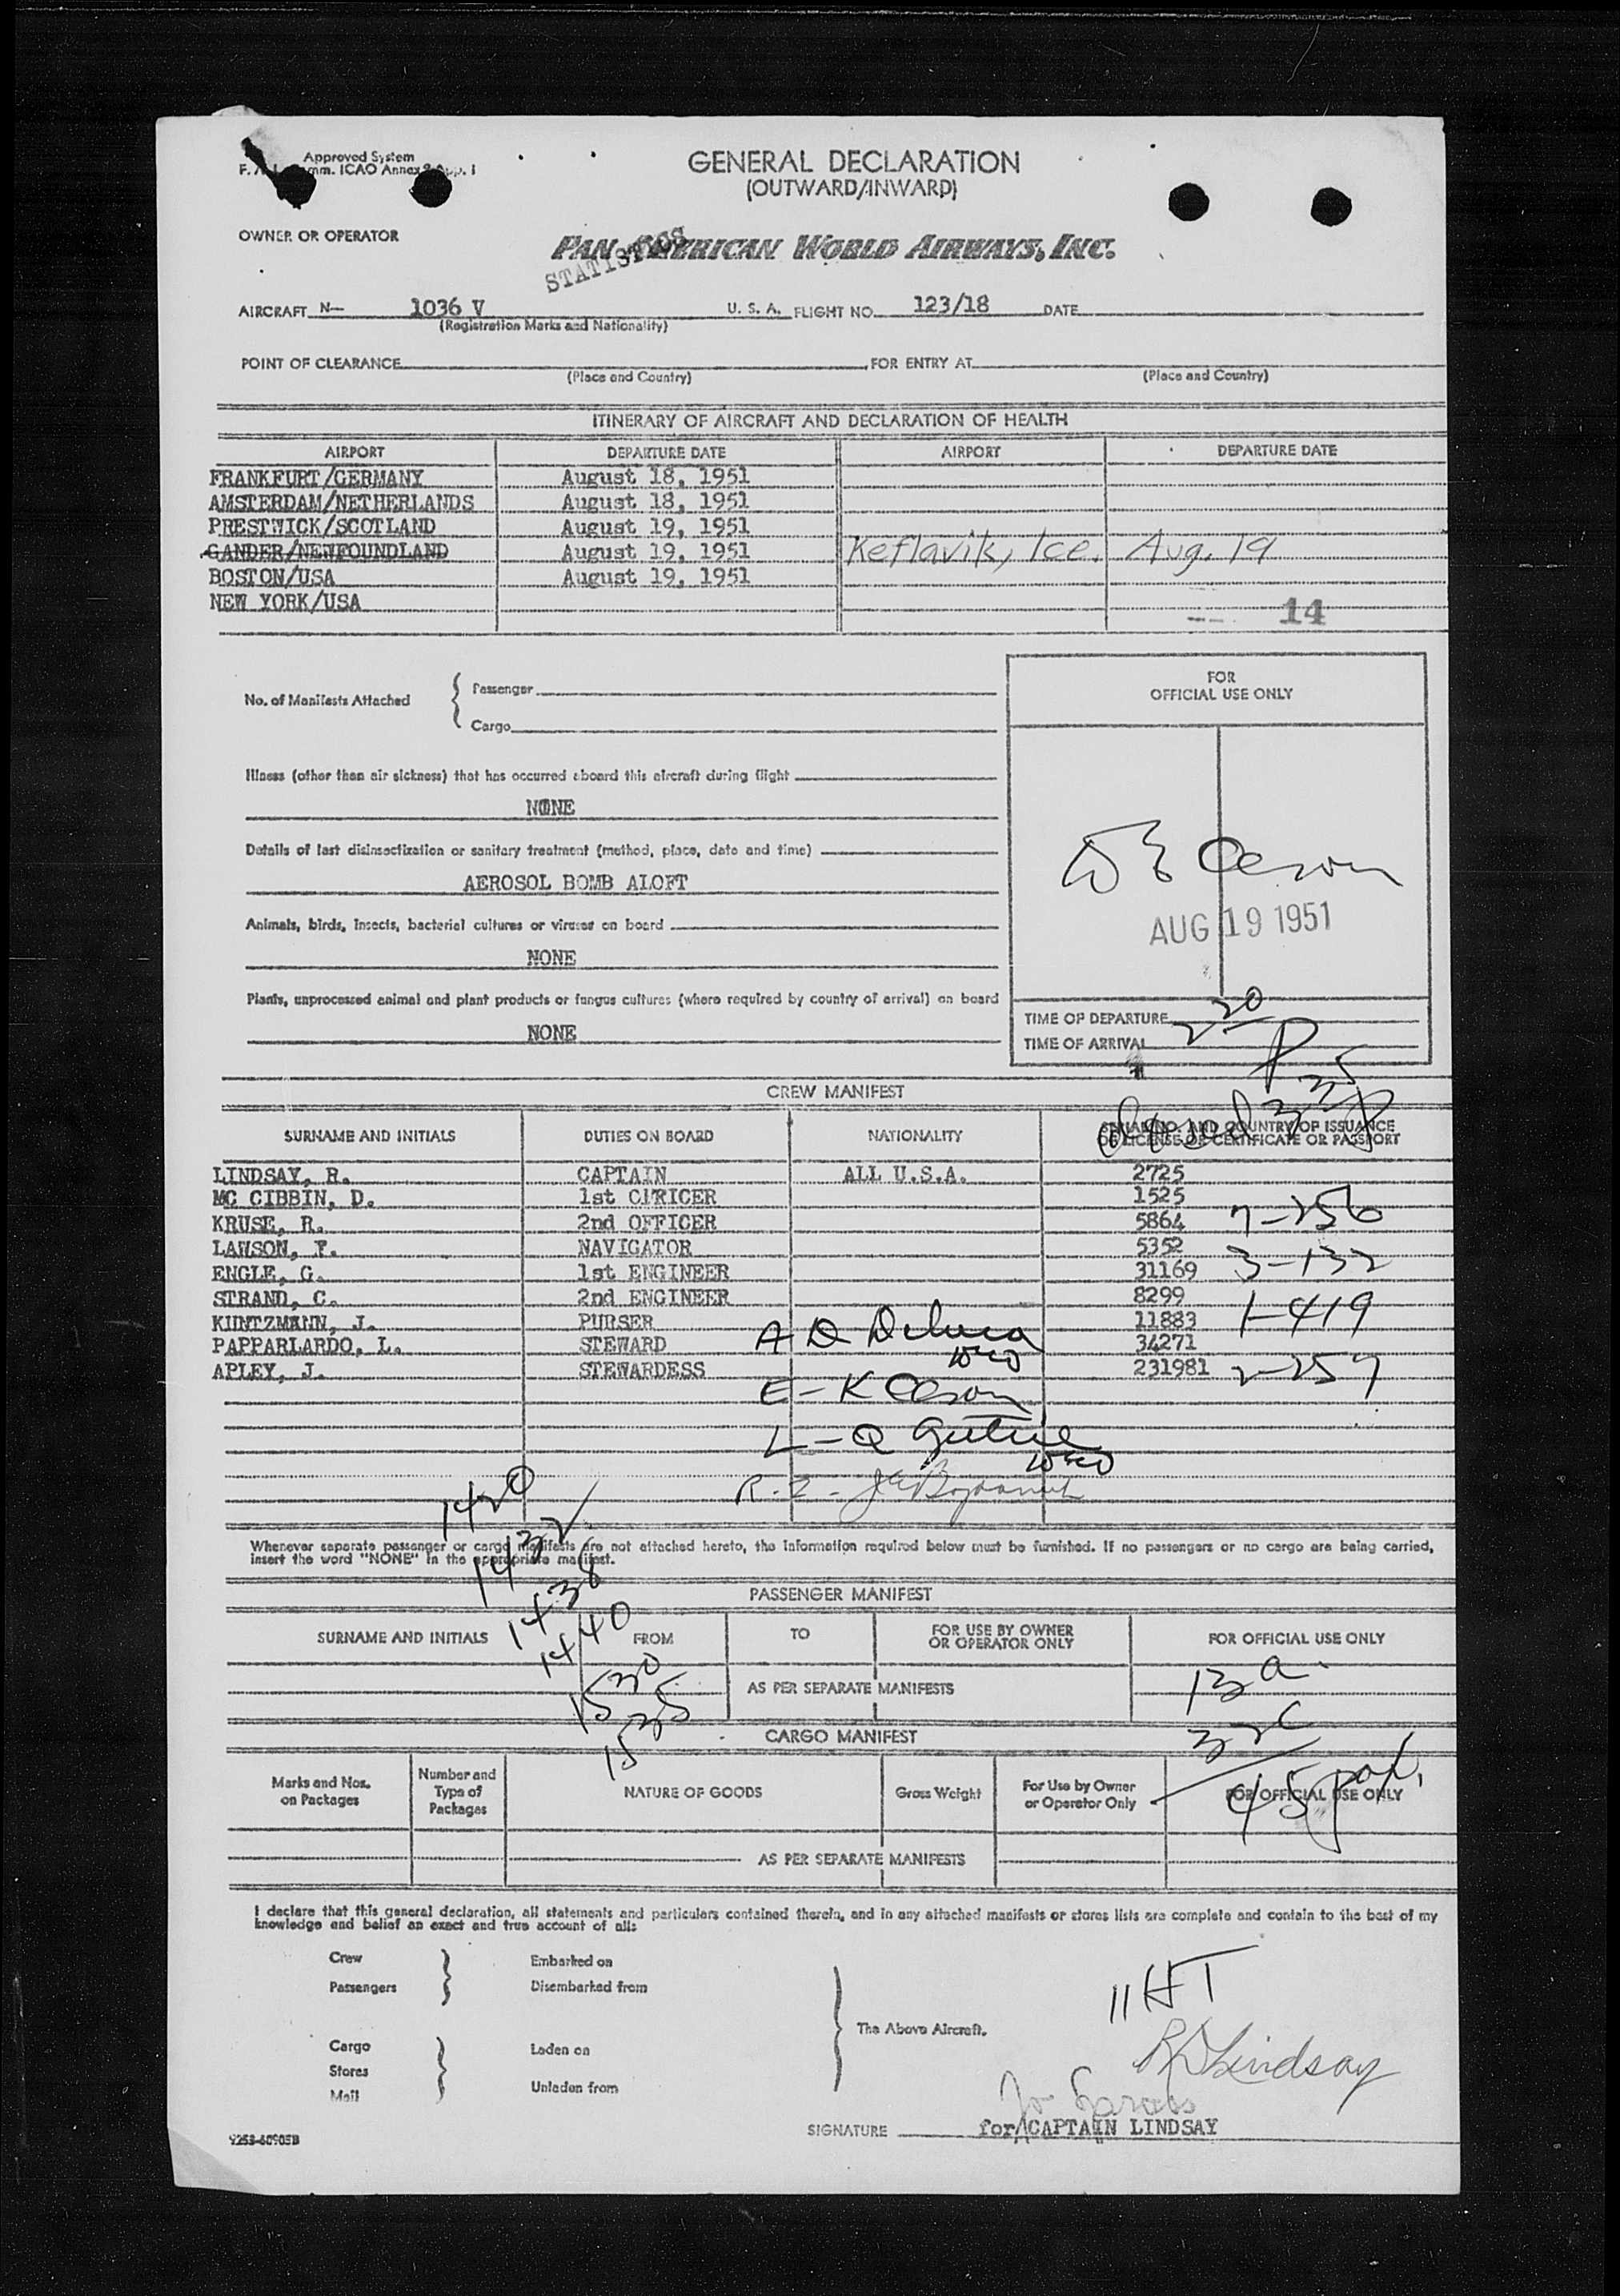 Approved System
GENERAL DECLARATION
F. mm. ICAO Annex 9 App. I
(OUTWARD/INWARD)
OWNER OR OPERATOR
PAN AMERICAN WORLD AIRWAYS, INC.
STATISTICS
AIRCRAFT N— 1036 V U. S. A. FLIGHT NO. 123/18 DATE
(Registration Marks and Nationality)
POINT OF CLEARANCE FOR ENTRY AT
(Place and Country) (Place and Country)
ITINERARY OF AIRCRAFT AND DECLARATION OF HEALTH
AIRPORT DEPARTURE DATE AIRPORT DEPARTURE DATE
FRANKFURT/GERMANY August 18, 1951
AMSTERDAM/NETHERLANDS August 18, 1951
PRESTWICK/SCOTLAND August 19, 1951
GANDER/NEWFOUNDLAND August 19, 1951 Keflavik, Ice. Aug. 19
BOSTON/USA August 19, 1951
NEW YORK/USA
14
FOR
OFFICIAL USE ONLY
No. of Manifests Attached
Passenger
Cargo
Illness (other than air sickness) that has occurred aboard this aircraft during flight
NONE
Details of last disinsectization or sanitary treatment (method, place, date and time)
AEROSOL BOMB ALOFT
Animals, birds, insects, bacterial cultures or viruses on board
NONE
AUG 19 1951
Plants, unprocessed animal and plant products or fungus cultures (where required by country of arrival) on board
NONE
TIME OF DEPARTURE 2 20
TIME OF ARRIVAL P
3 35 P
CREW MANIFEST
SURNAME AND INITIALS DUTIES ON BOARD NATIONALITY SERIAL NO. AND COUNTRY OF ISSUANCE
OF LICENSE OR CERTIFICATE OR PASSPORT
LINDSAY, R. CAPTAIN ALL U.S.A. 2725
MC CIBBIN, D. 1st OFFICER 1525
KRUSE, R. 2nd OFFICER 5864 7-256
LAWSON, F. NAVIGATOR 5352
ENGLE, G. 1st ENGINEER 31169 3-132
STRAND, C. 2nd ENGINEER 8299
KUNTZMANN, J. PURSER 11883 1-419
PAPPARLARDO, L. STEWARD 34271
APLEY, J. STEWARDESS 231981 2-257
A D Deluca
E-K Oleson
L-Q Guthrie
R-2-
1420
1432
1438
1440
1530
1535
Whenever separate passenger or cargo manifests are not attached hereto, the information required below must be furnished. If no passengers or no cargo are being carried,
insert the word "NONE" in the appropriate manifest.
PASSENGER MANIFEST
SURNAME AND INITIALS FROM TO FOR USE BY OWNER
OR OPERATOR ONLY FOR OFFICIAL USE ONLY
AS PER SEPARATE MANIFESTS
13 a.
32 c
45 pax.
CARGO MANIFEST
Marks and Nos.
on Packages
Number and
Type of
Packages
NATURE OF GOODS
Gross Weight
For Use by Owner
or Operator Only
FOR OFFICIAL USE ONLY
AS PER SEPARATE MANIFESTS
I declare that this general declaration, all statements and particulars contained therein, and in any attached manifests or stores lists are complete and contain to the best of my
knowledge and belief an exact and true account of all:
Crew
Passengers
Embarked on
Disembarked from
Cargo
Stores
Mail
Laden on
Unladen from
The Above Aircraft.
11 HT
R D Lindsay
SIGNATURE for/CAPTAIN LINDSAY